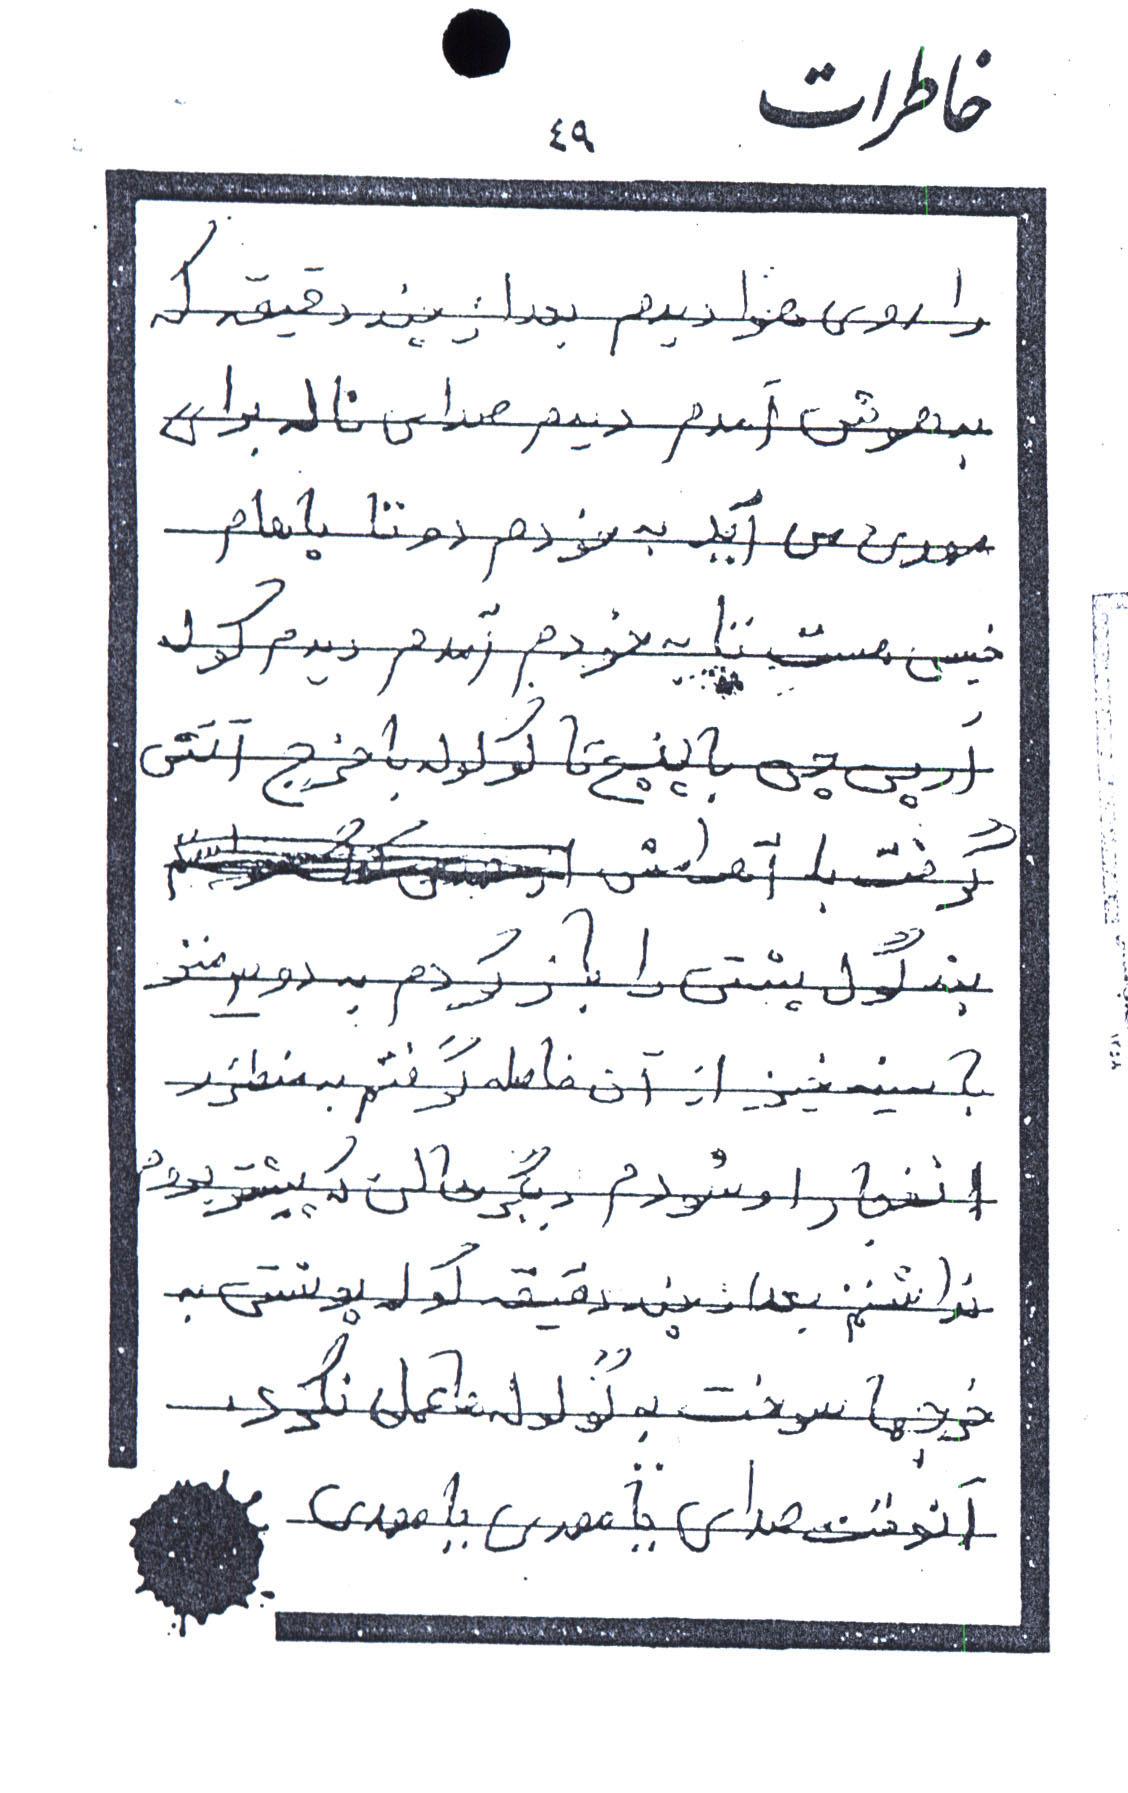 خاطرات
٤٩
را روی هوا دیدم بعد از چند دقیقه که
به هوش آمدم دیدم صدای ناله برای
مهدی می آید به خودم دو تا پاهام
خیس هست تا به خودم آمدم دیدم کوله
آر پی چی با پنج تا گوگوله با خرج آتش
گرفت با آتش
بند کول پشتی را باز کردم به دو متر
با سینه خیز از آن فاصله گرفتم به منظر
انفجار او شودم دیگر حالی که پیشتر بروم
نداشتم بعد از چند دقیقه کوله پوشتی به
خرجها سوخت به گولوله ها عمل نکرد
آنوقت صدای یا مهدی یا مهدی